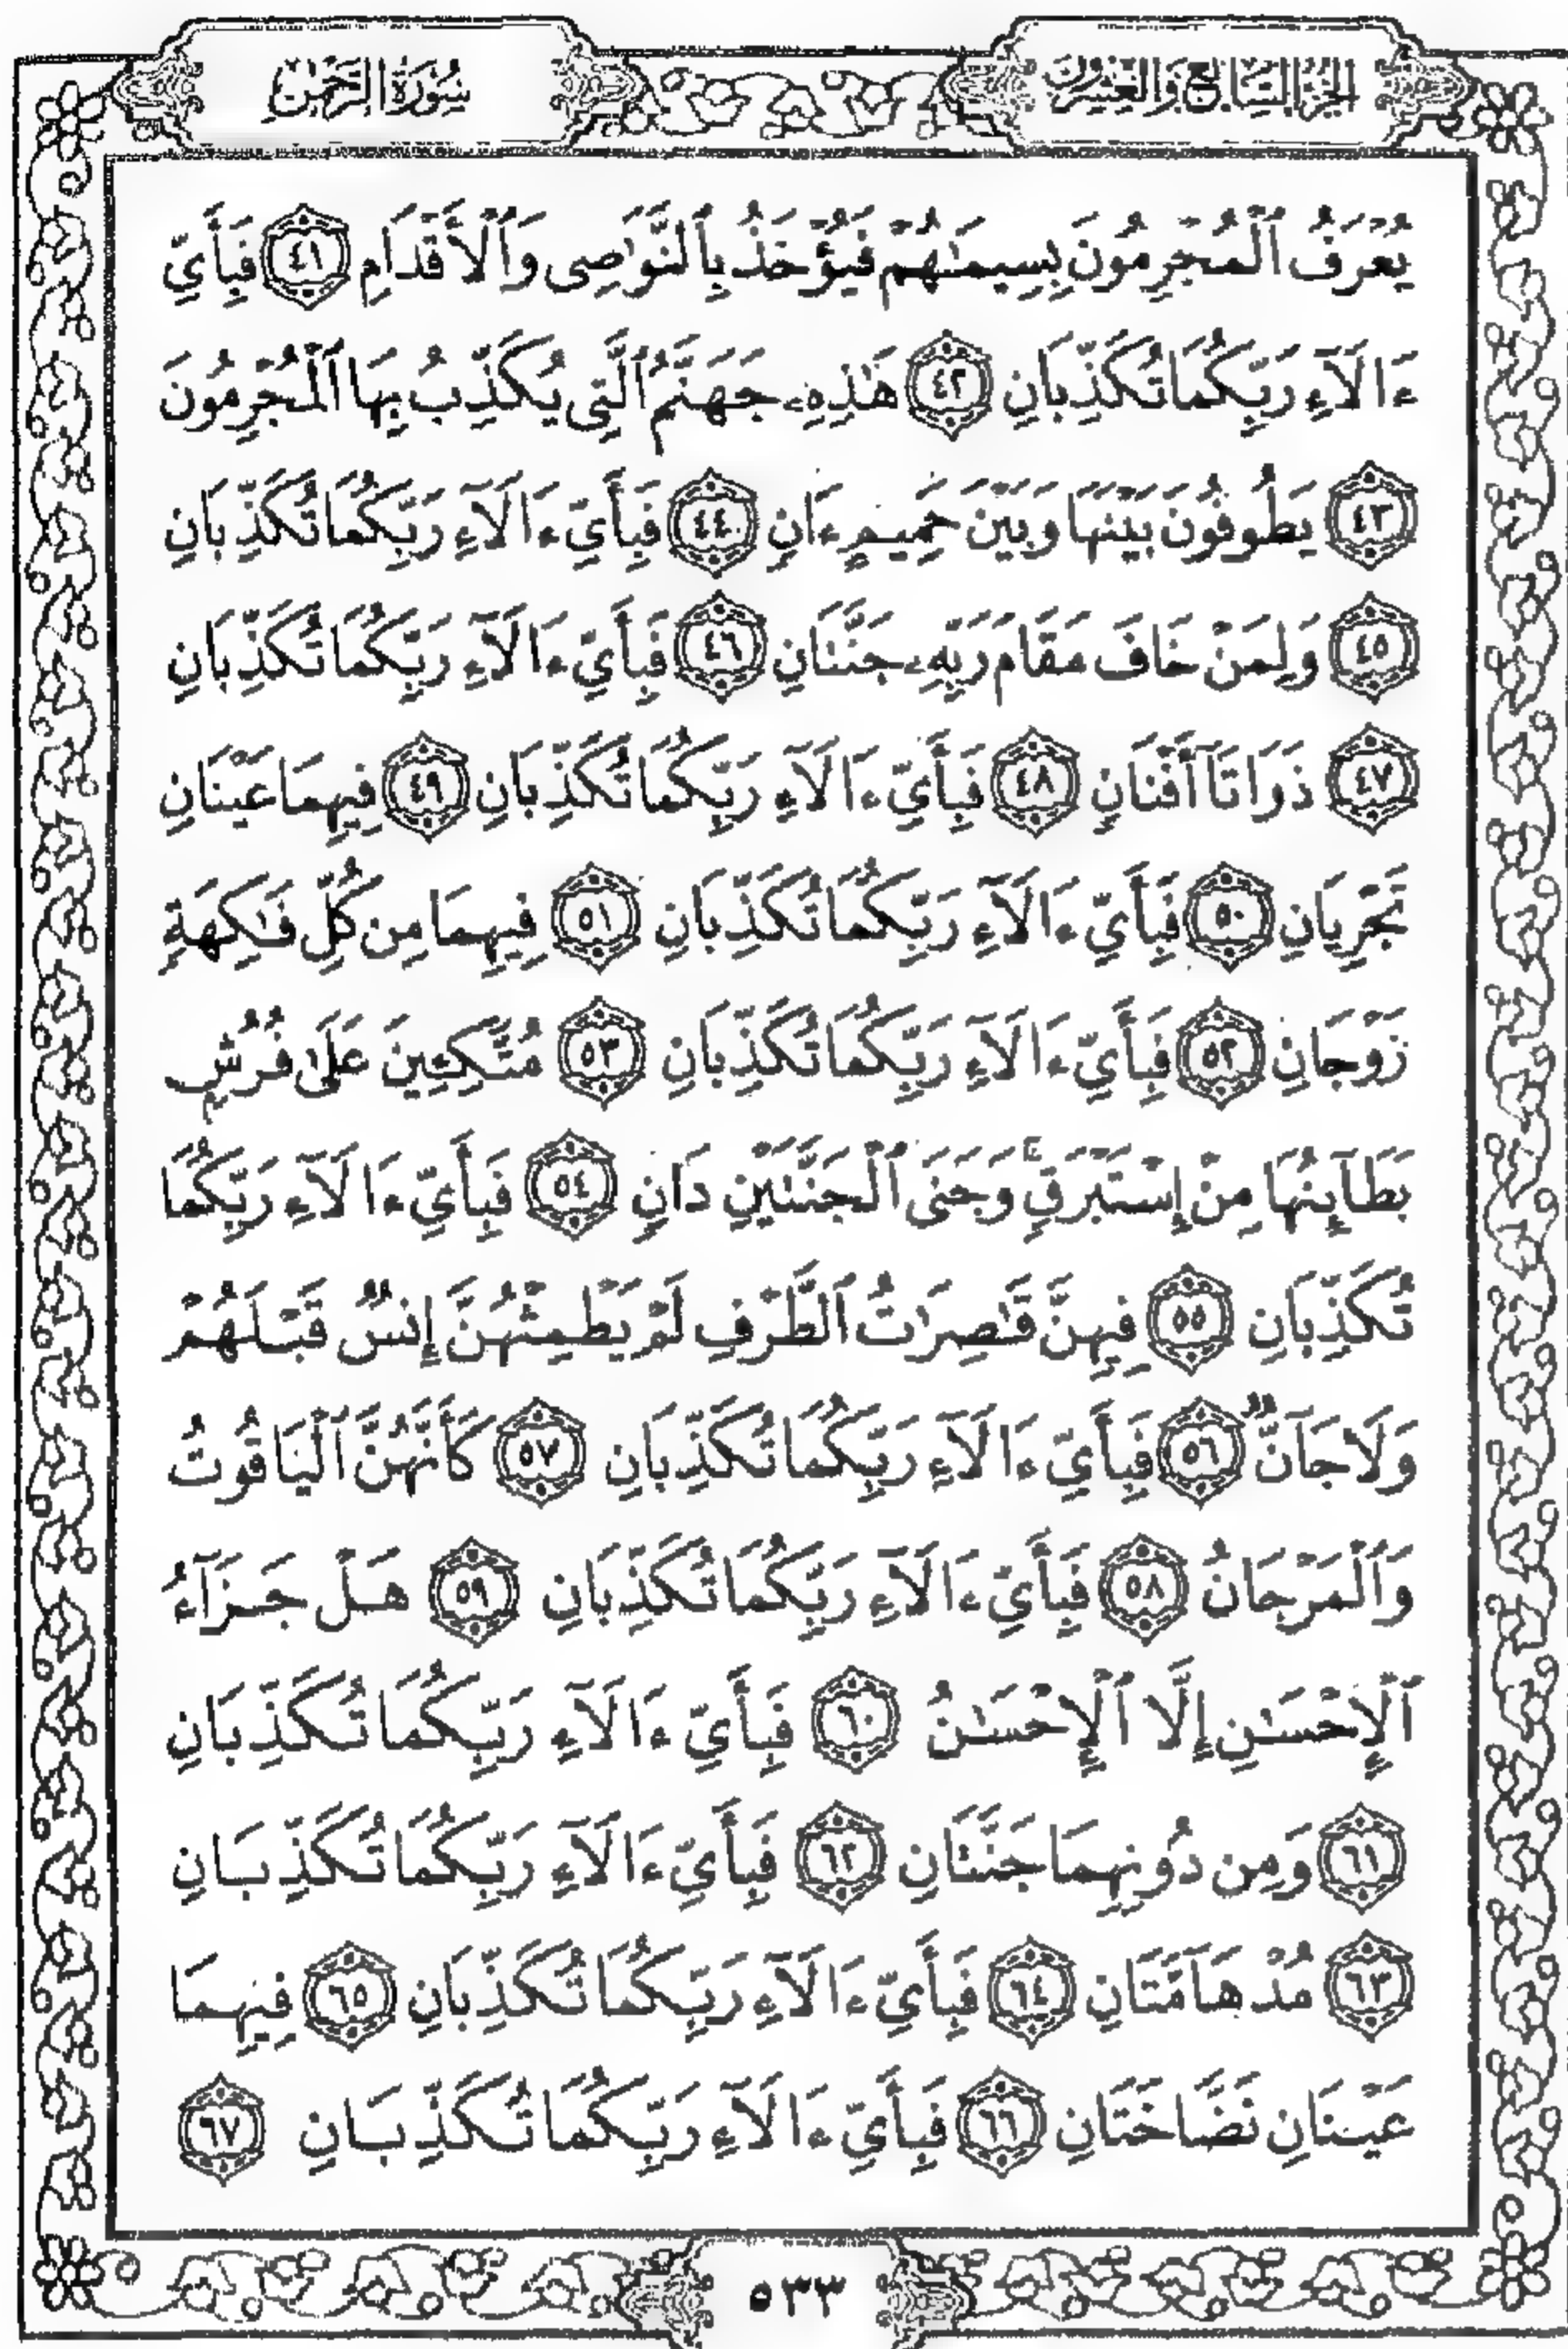 الجزء السابع والعشرون
سورة الرحمن
يُعْرَفُ ٱلْمُجْرِمُونَ بِسِيمَـٰهُمْ فَيُؤْخَذُ بِٱلنَّوَٰصِى وَٱلْأَقْدَامِ ٤١ فَبِأَىِّ
ءَالَآءِ رَبِّكُمَا تُكَذِّبَانِ ٤٢ هَـٰذِهِۦ جَهَنَّمُ ٱلَّتِى يُكَذِّبُ بِهَا ٱلْمُجْرِمُونَ
٤٣ يَطُوفُونَ بَيْنَهَا وَبَيْنَ حَمِيمٍ ءَانٍ ٤٤ فَبِأَىِّ ءَالَآءِ رَبِّكُمَا تُكَذِّبَانِ
٤٥ وَلِمَنْ خَافَ مَقَامَ رَبِّهِۦ جَنَّتَانِ ٤٦ فَبِأَىِّ ءَالَآءِ رَبِّكُمَا تُكَذِّبَانِ
٤٧ ذَوَاتَآ أَفْنَانٍ ٤٨ فَبِأَىِّ ءَالَآءِ رَبِّكُمَا تُكَذِّبَانِ ٤٩ فِيهِمَا عَيْنَانِ
تَجْرِيَانِ ٥٠ فَبِأَىِّ ءَالَآءِ رَبِّكُمَا تُكَذِّبَانِ ٥١ فِيهِمَا مِن كُلِّ فَـٰكِهَةٍ
زَوْجَانِ ٥٢ فَبِأَىِّ ءَالَآءِ رَبِّكُمَا تُكَذِّبَانِ ٥٣ مُتَّكِـِٔينَ عَلَىٰ فُرُشٍۭ
بَطَآئِنُهَا مِنْ إِسْتَبْرَقٍ ۚ وَجَنَى ٱلْجَنَّتَيْنِ دَانٍ ٥٤ فَبِأَىِّ ءَالَآءِ رَبِّكُمَا
تُكَذِّبَانِ ٥٥ فِيهِنَّ قَـٰصِرَٰتُ ٱلطَّرْفِ لَمْ يَطْمِثْهُنَّ إِنسٌ قَبْلَهُمْ
وَلَا جَآنٌّ ٥٦ فَبِأَىِّ ءَالَآءِ رَبِّكُمَا تُكَذِّبَانِ ٥٧ كَأَنَّهُنَّ ٱلْيَاقُوتُ
وَٱلْمَرْجَانُ ٥٨ فَبِأَىِّ ءَالَآءِ رَبِّكُمَا تُكَذِّبَانِ ٥٩ هَلْ جَزَآءُ
ٱلْإِحْسَـٰنِ إِلَّا ٱلْإِحْسَـٰنُ ٦٠ فَبِأَىِّ ءَالَآءِ رَبِّكُمَا تُكَذِّبَانِ
٦١ وَمِن دُونِهِمَا جَنَّتَانِ ٦٢ فَبِأَىِّ ءَالَآءِ رَبِّكُمَا تُكَذِّبَانِ
٦٣ مُدْهَآمَّتَانِ ٦٤ فَبِأَىِّ ءَالَآءِ رَبِّكُمَا تُكَذِّبَانِ ٦٥ فِيهِمَا
عَيْنَانِ نَضَّاخَتَانِ ٦٦ فَبِأَىِّ ءَالَآءِ رَبِّكُمَا تُكَذِّبَانِ ٦٧
٥٣٣